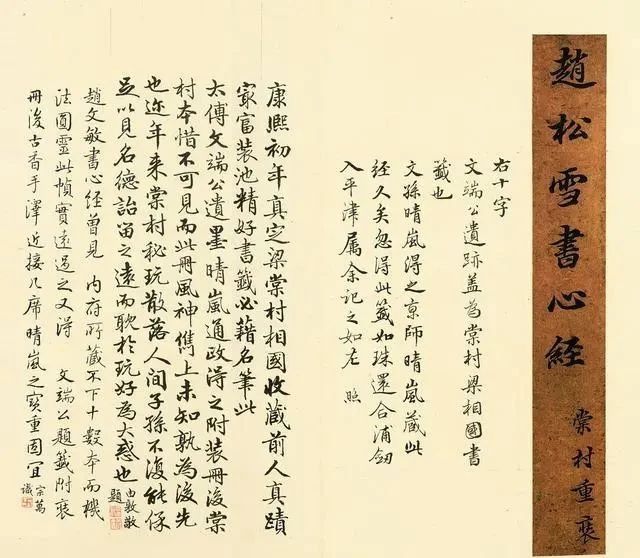 趙松雪書心經
棠村重裝
右十字
文端公遺跡蓋為棠村梁相國書
籤也
文孫晴嵐得之京師晴嵐藏此
經久矣忽得此籤如珠還合浦劍
入平津屬余記之如左 照
康熙初年真定梁棠村相國收藏前人真蹟
最富裝池精好書籤必藉名筆此
太傅文端公遺墨晴嵐通政得之附裝冊後棠
村本惜不可見而此冊風神雋上未知孰為後先
也近年来棠村秘玩散落人間子孫不復能保
足以見名德詒留之遠而耽於玩好為大惑也 由敦敬題
趙文敏書心經曾見 内府所藏不下十數本而機
法圓靈此幀實遠過之又得 文端公題籤附裝
冊後古香手澤近接几席晴嵐之寶重固宜 宗萬識